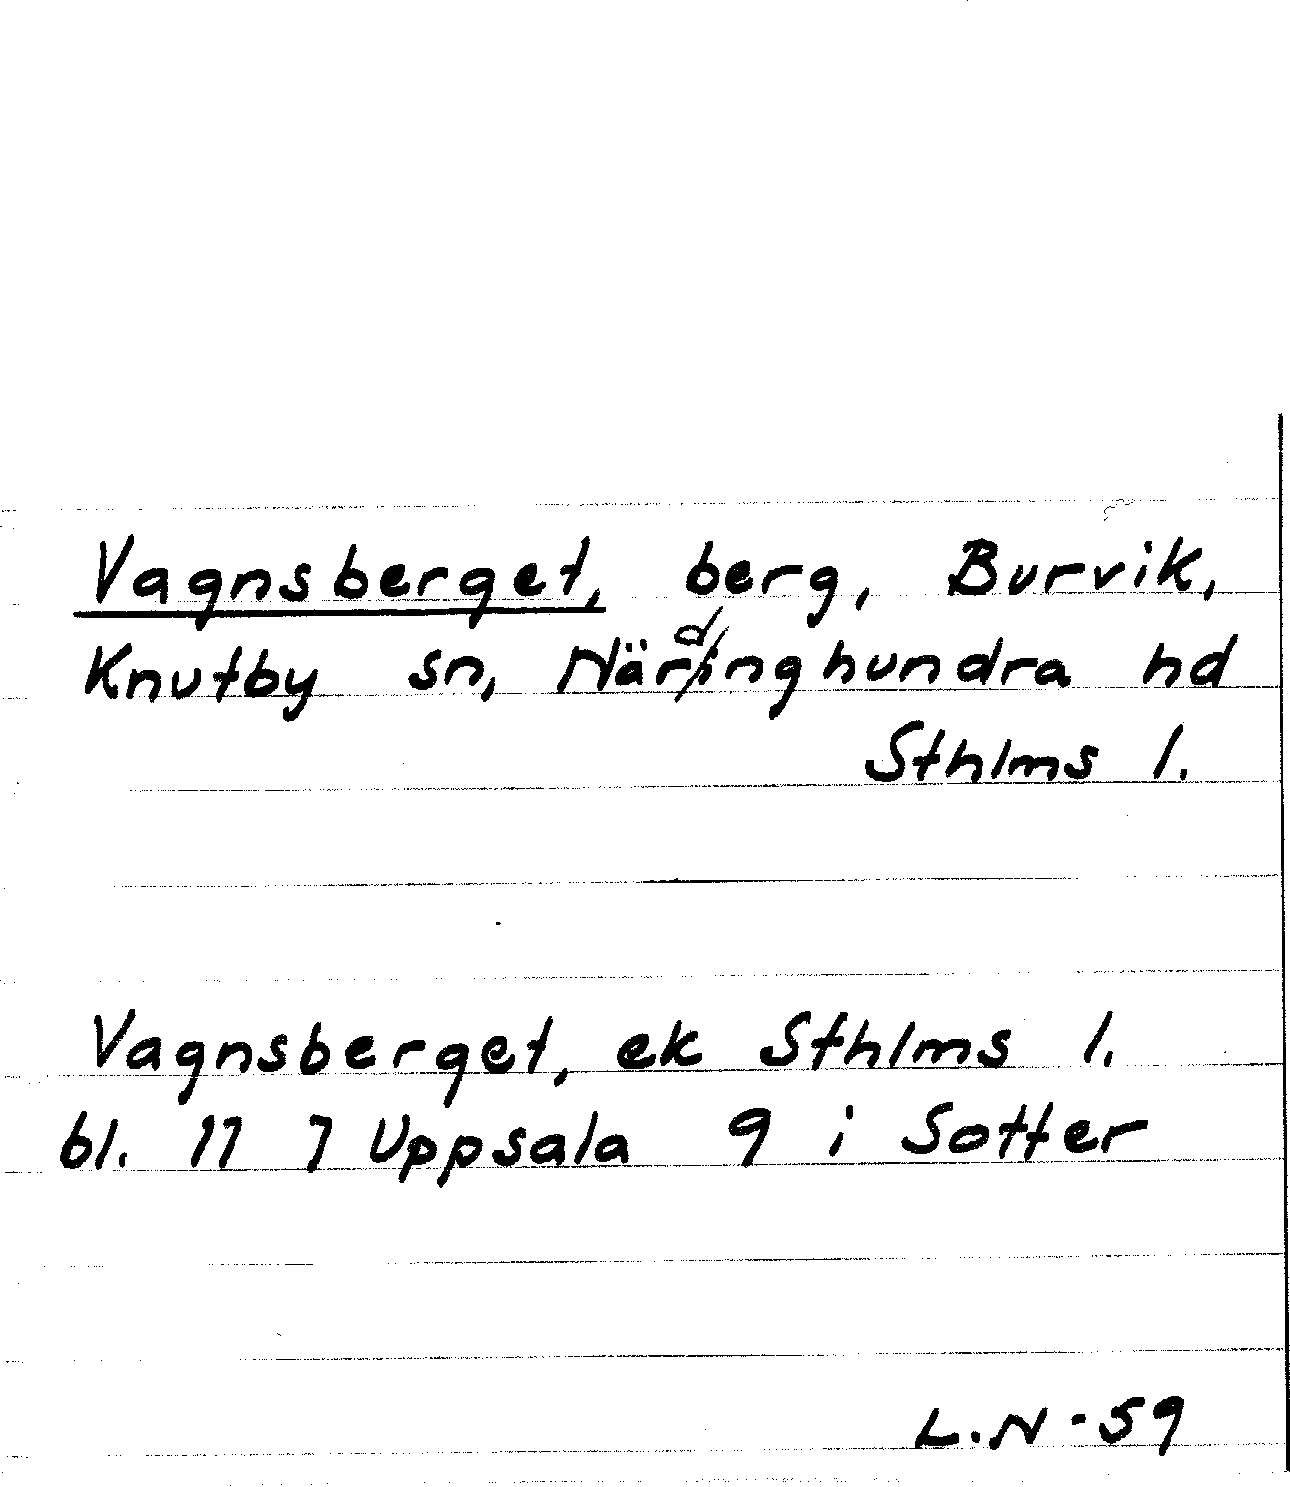 Vagnsberget, berg, Burvik,
Knutby sn, Närdinghundra hd
Sthlms l.
Vagnsberget, ek Sthlms l.
bl. 77 7 Uppsala 9 i Sotter
L.N-59